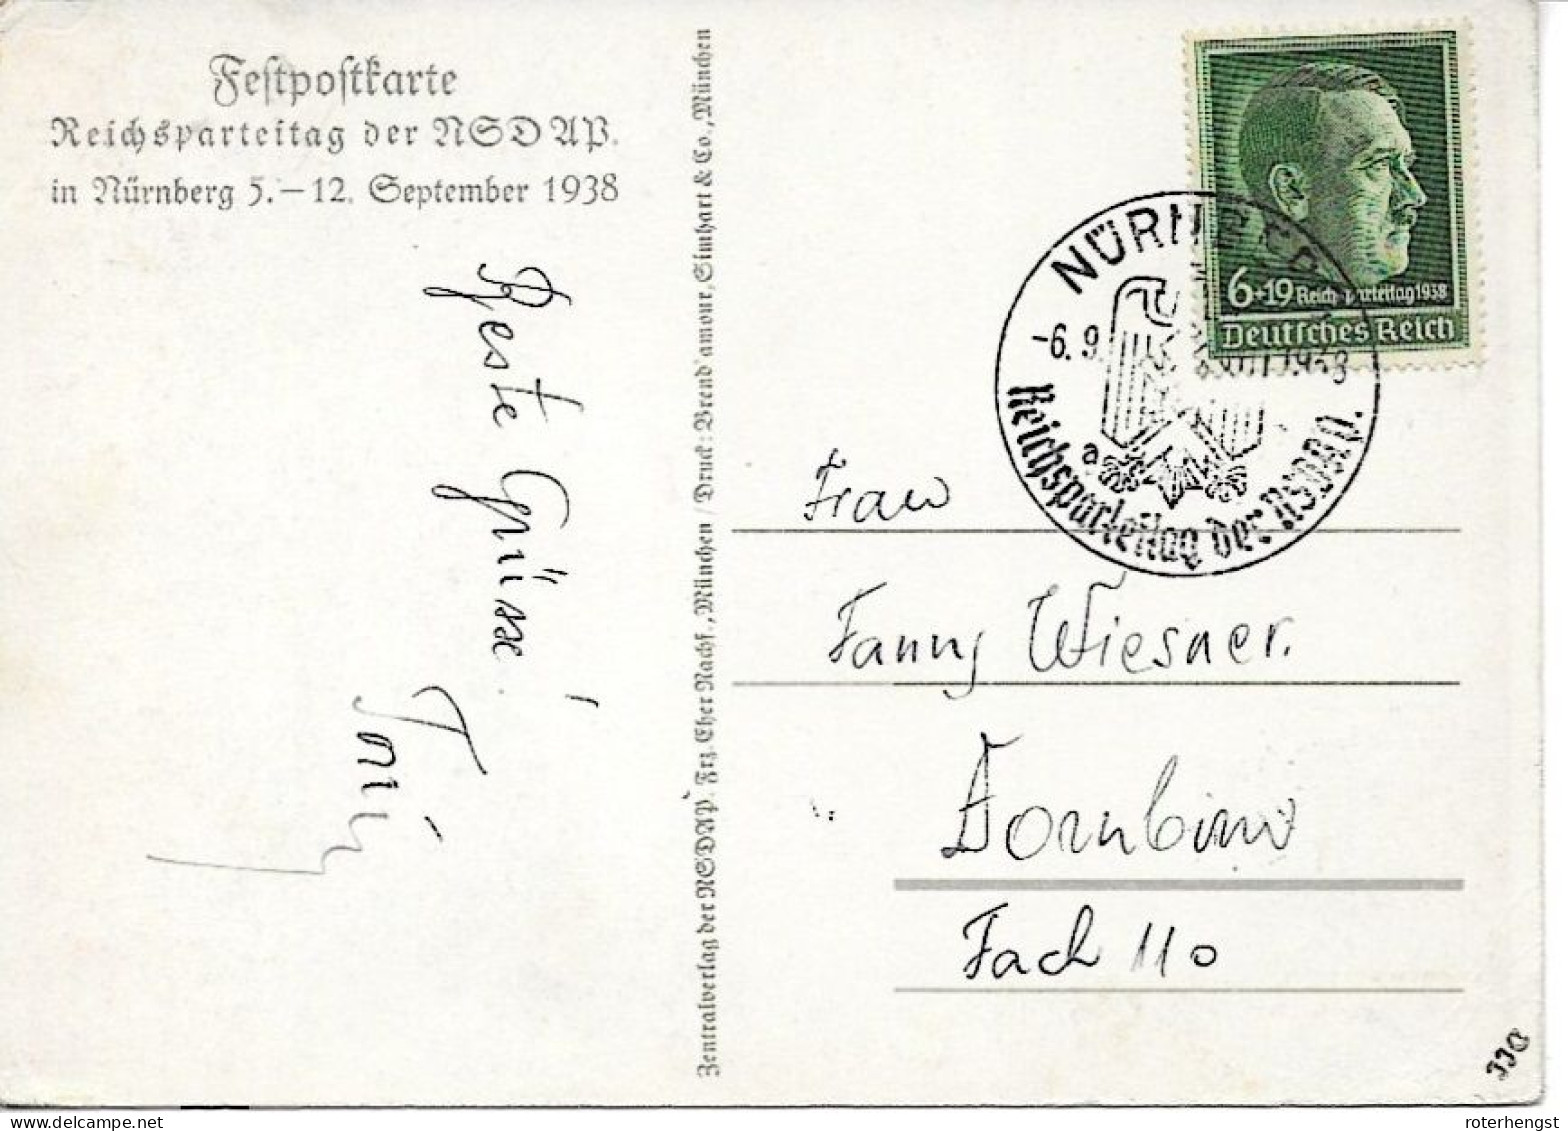 Festpostkarte
Reichsparteitag der NSDAP.
in Nürnberg 5.–12. September 1938
Beste Grüsse
Zentralverlag der NSDAP. Frz. Eher Nachf., München / Druck: Brend'amour, Simhart & Co., München
6+19 Reichsparteitag 1938
Deutsches Reich
NÜRNBERG
-6.9.
a
Reichsparteitag der NSDAP.
Frau
Fanny Wiesner.
Dornbirn
Fach 110
roterhengst